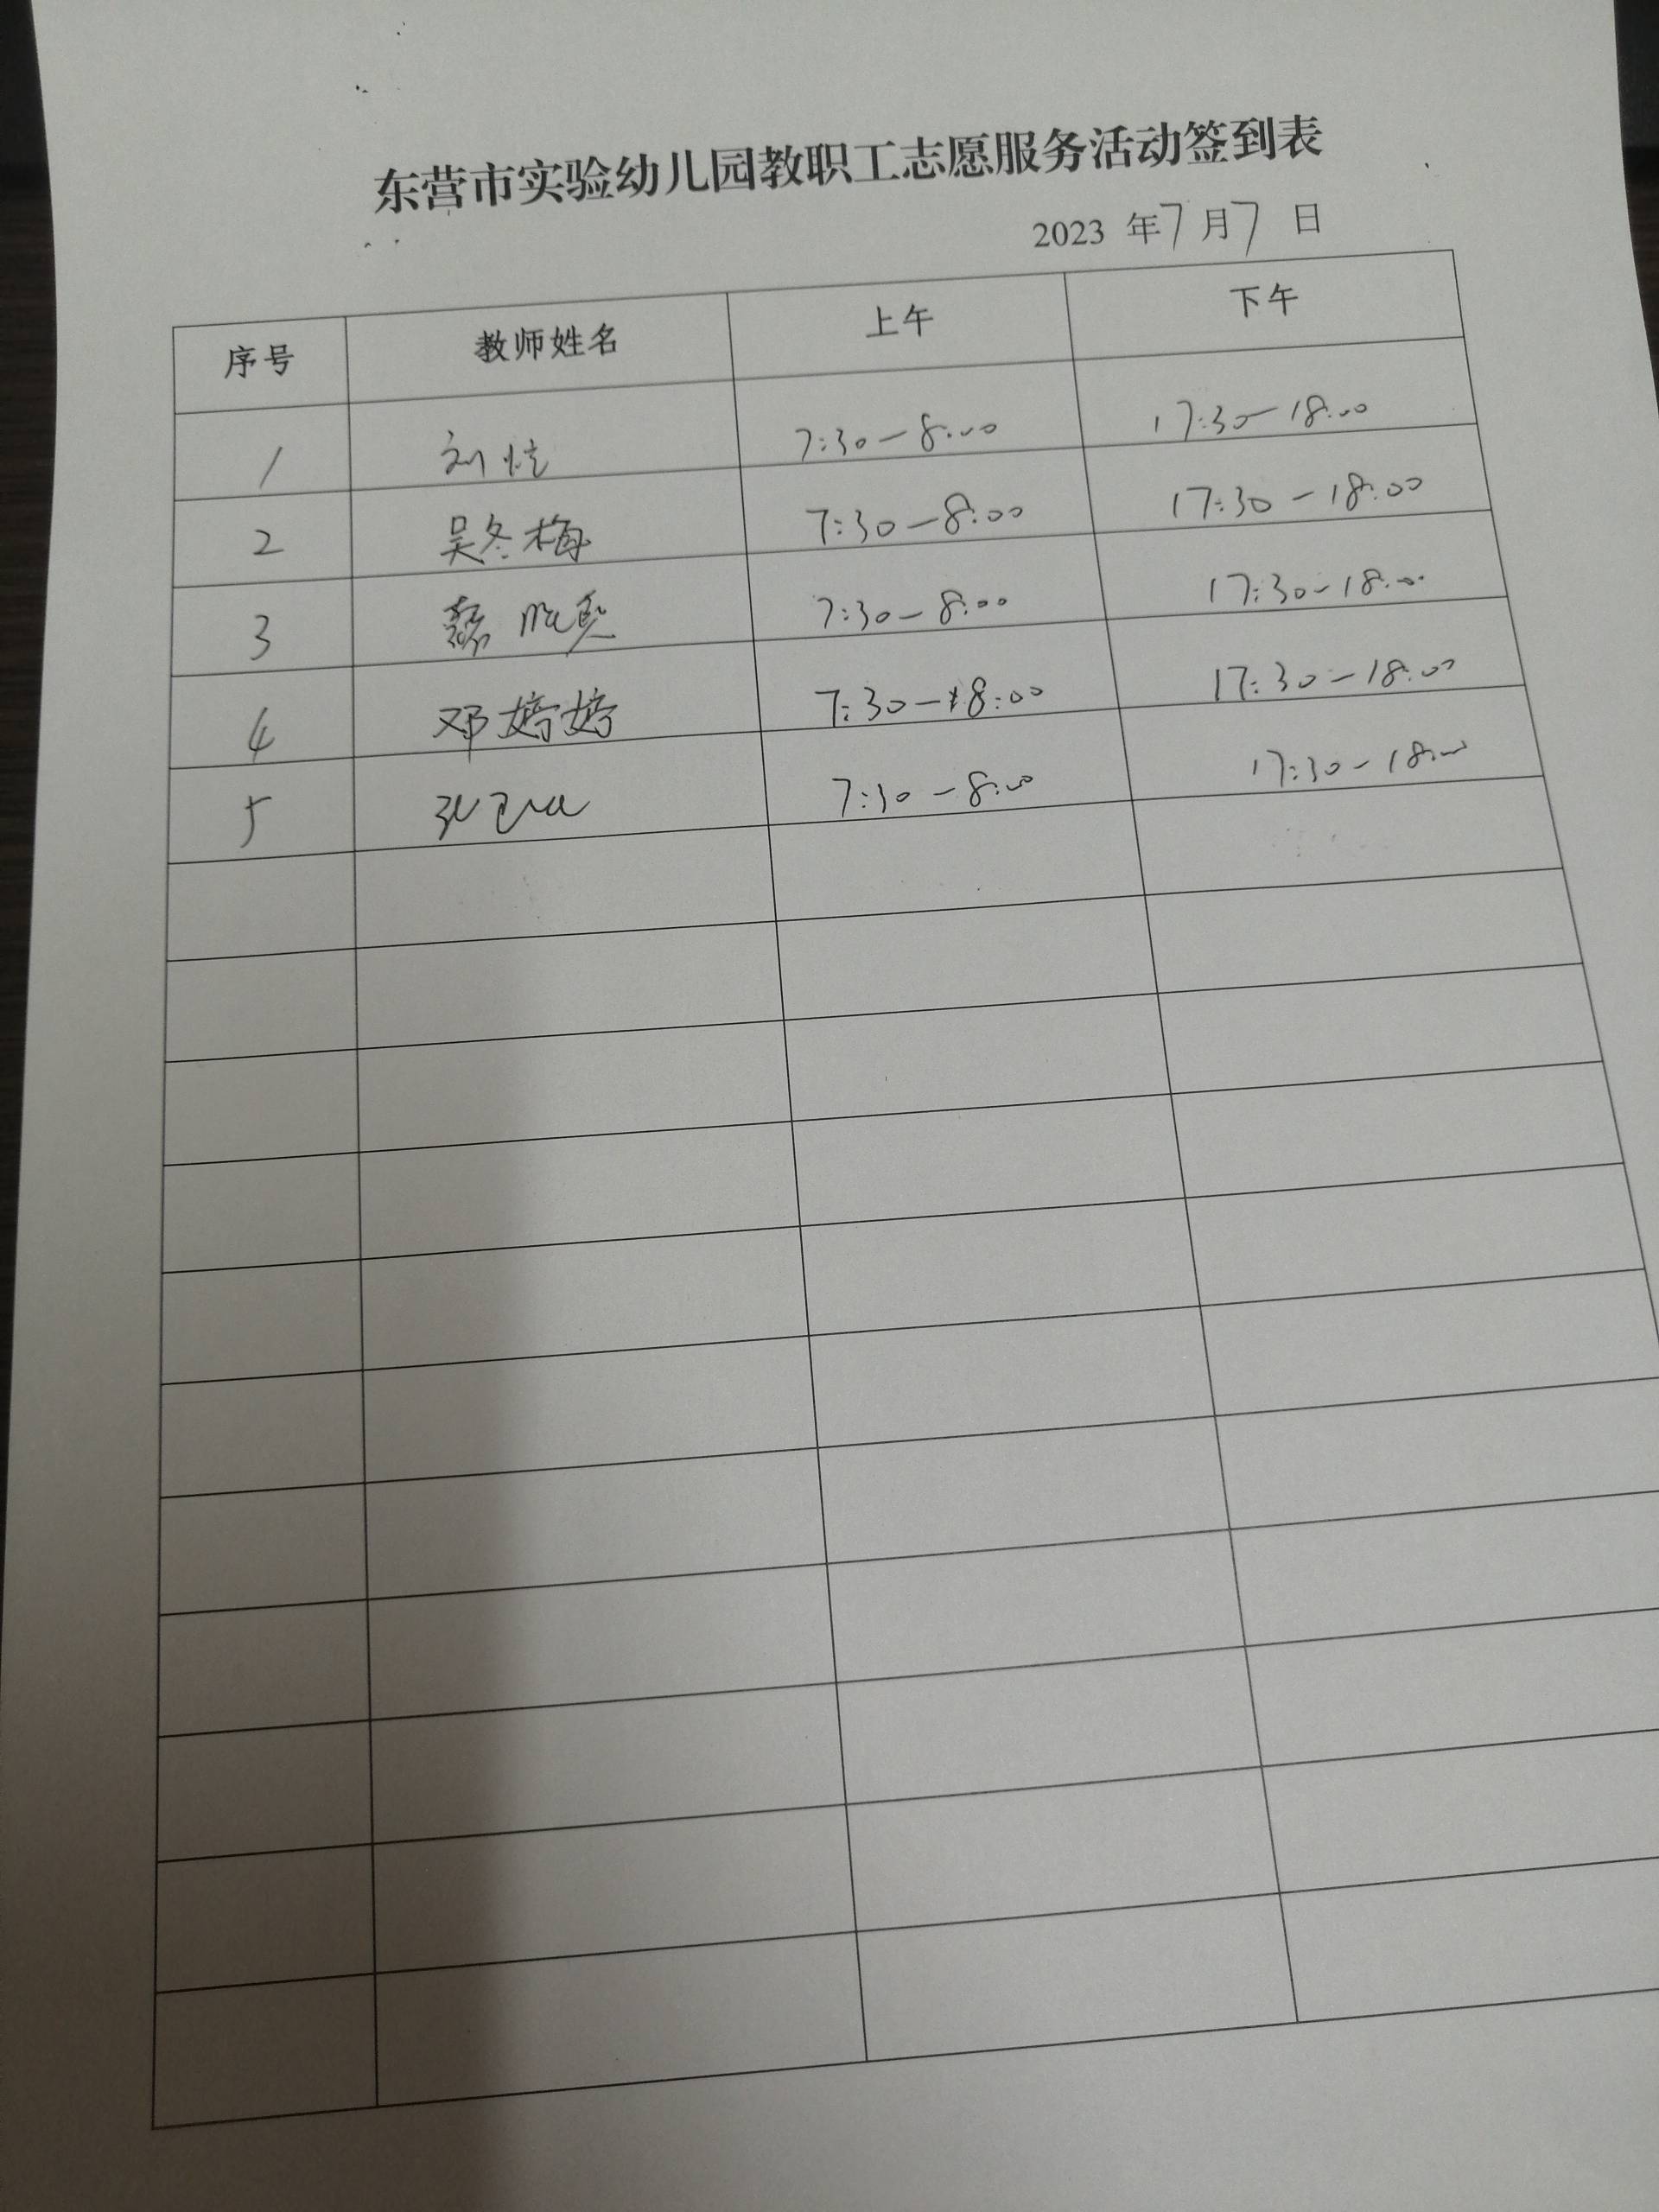 东营市实验幼儿园教职工志愿服务活动签到表
2023 年 7 月 7 日
序号 教师姓名 上午 下午
1 刘 7:30-8:00 17:30-18:00
2 吴冬梅 7:30-8:00 17:30-18:00
3 7:30-8:00 17:30-18:00
4 邓婷婷 7:30-8:00 17:30-18:00
5 7:30-8:00 17:30-18:00